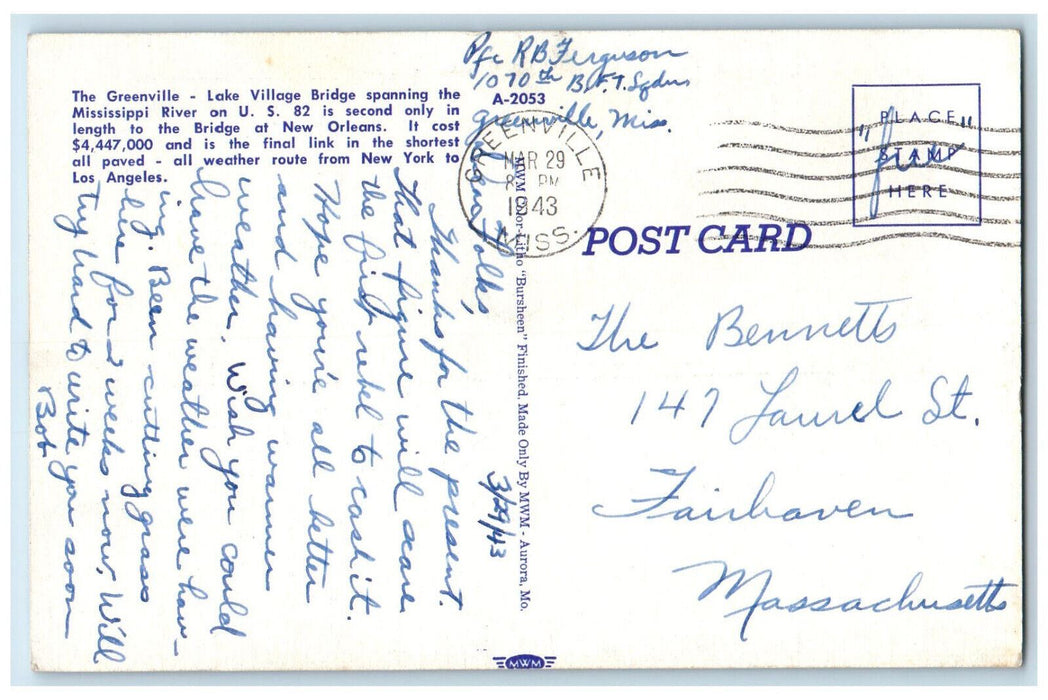 Pfc RB Ferguson
1070th B.F.T. Sqdn
Greenville, Miss.
The Greenville - Lake Village Bridge spanning the
Mississippi River on U. S. 82 is second only in
length to the Bridge at New Orleans. It cost
$4,447,000 and is the final link in the shortest
all paved - all weather route from New York to
Los Angeles.
A-2053
GREENVILLE
MAR 29
8 PM
1943
MISS.
"PLACE"
STAMP
HERE
free
POST CARD
Folks,
Thanks for the present.
That figure will scare
the first rebel to cash it.
Hope you're all better
and having warmer
weather. Wish you could
have the weather we're hav-
ing. Been cutting grass
here for 2 weeks now. Will
try hard to write you soon
Bob
3/29/43
MWM Color-Litho "Bursheen" Finished. Made Only By MWM - Aurora, Mo.
The Bennetts
147 Laurel St.
Fairhaven
Massachusetts
MWM